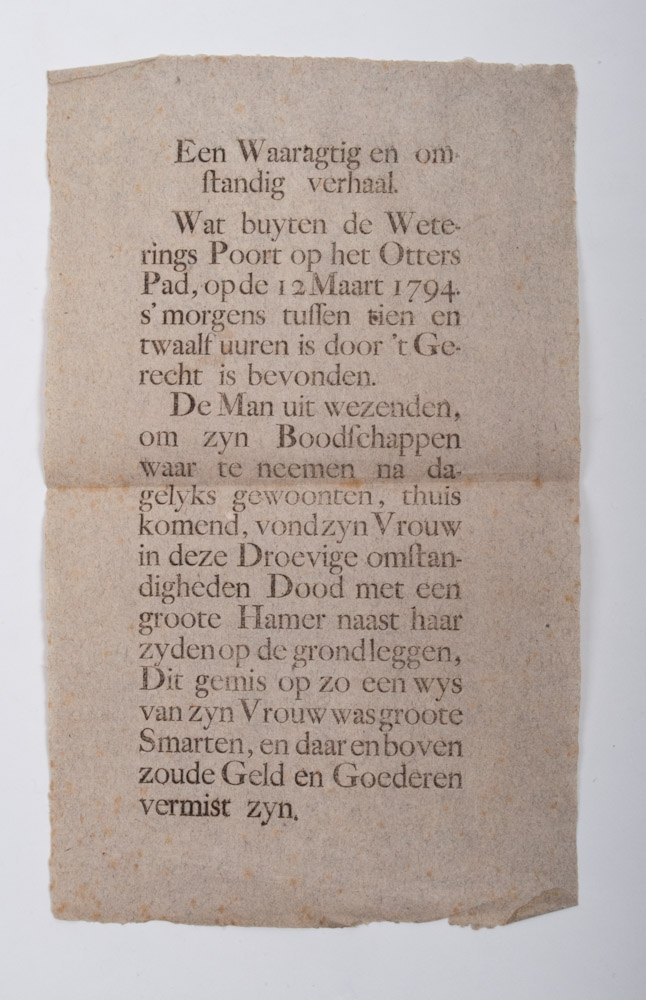 Een Waaragtig en om-
ſtandig verhaal.
Wat buyten de Wete-
rings Poort op het Otters
Pad, op de 12 Maart 1794.
s'morgens tuſſen tien en
twaalf uuren is door 't Ge-
recht is bevonden.
De Man uit wezenden,
om zyn Boodſchappen
waar te neemen na da-
gelyks gewoonten, thuis
komend, vond zyn Vrouw
in deze Droevige omſtan-
digheden Dood met een
groote Hamer naast haar
zyden op de grond leggen,
Dit gemis op zo een wys
van zyn Vrouw was groote
Smarten, en daar en boven
zoude Geld en Goederen
vermist zyn.